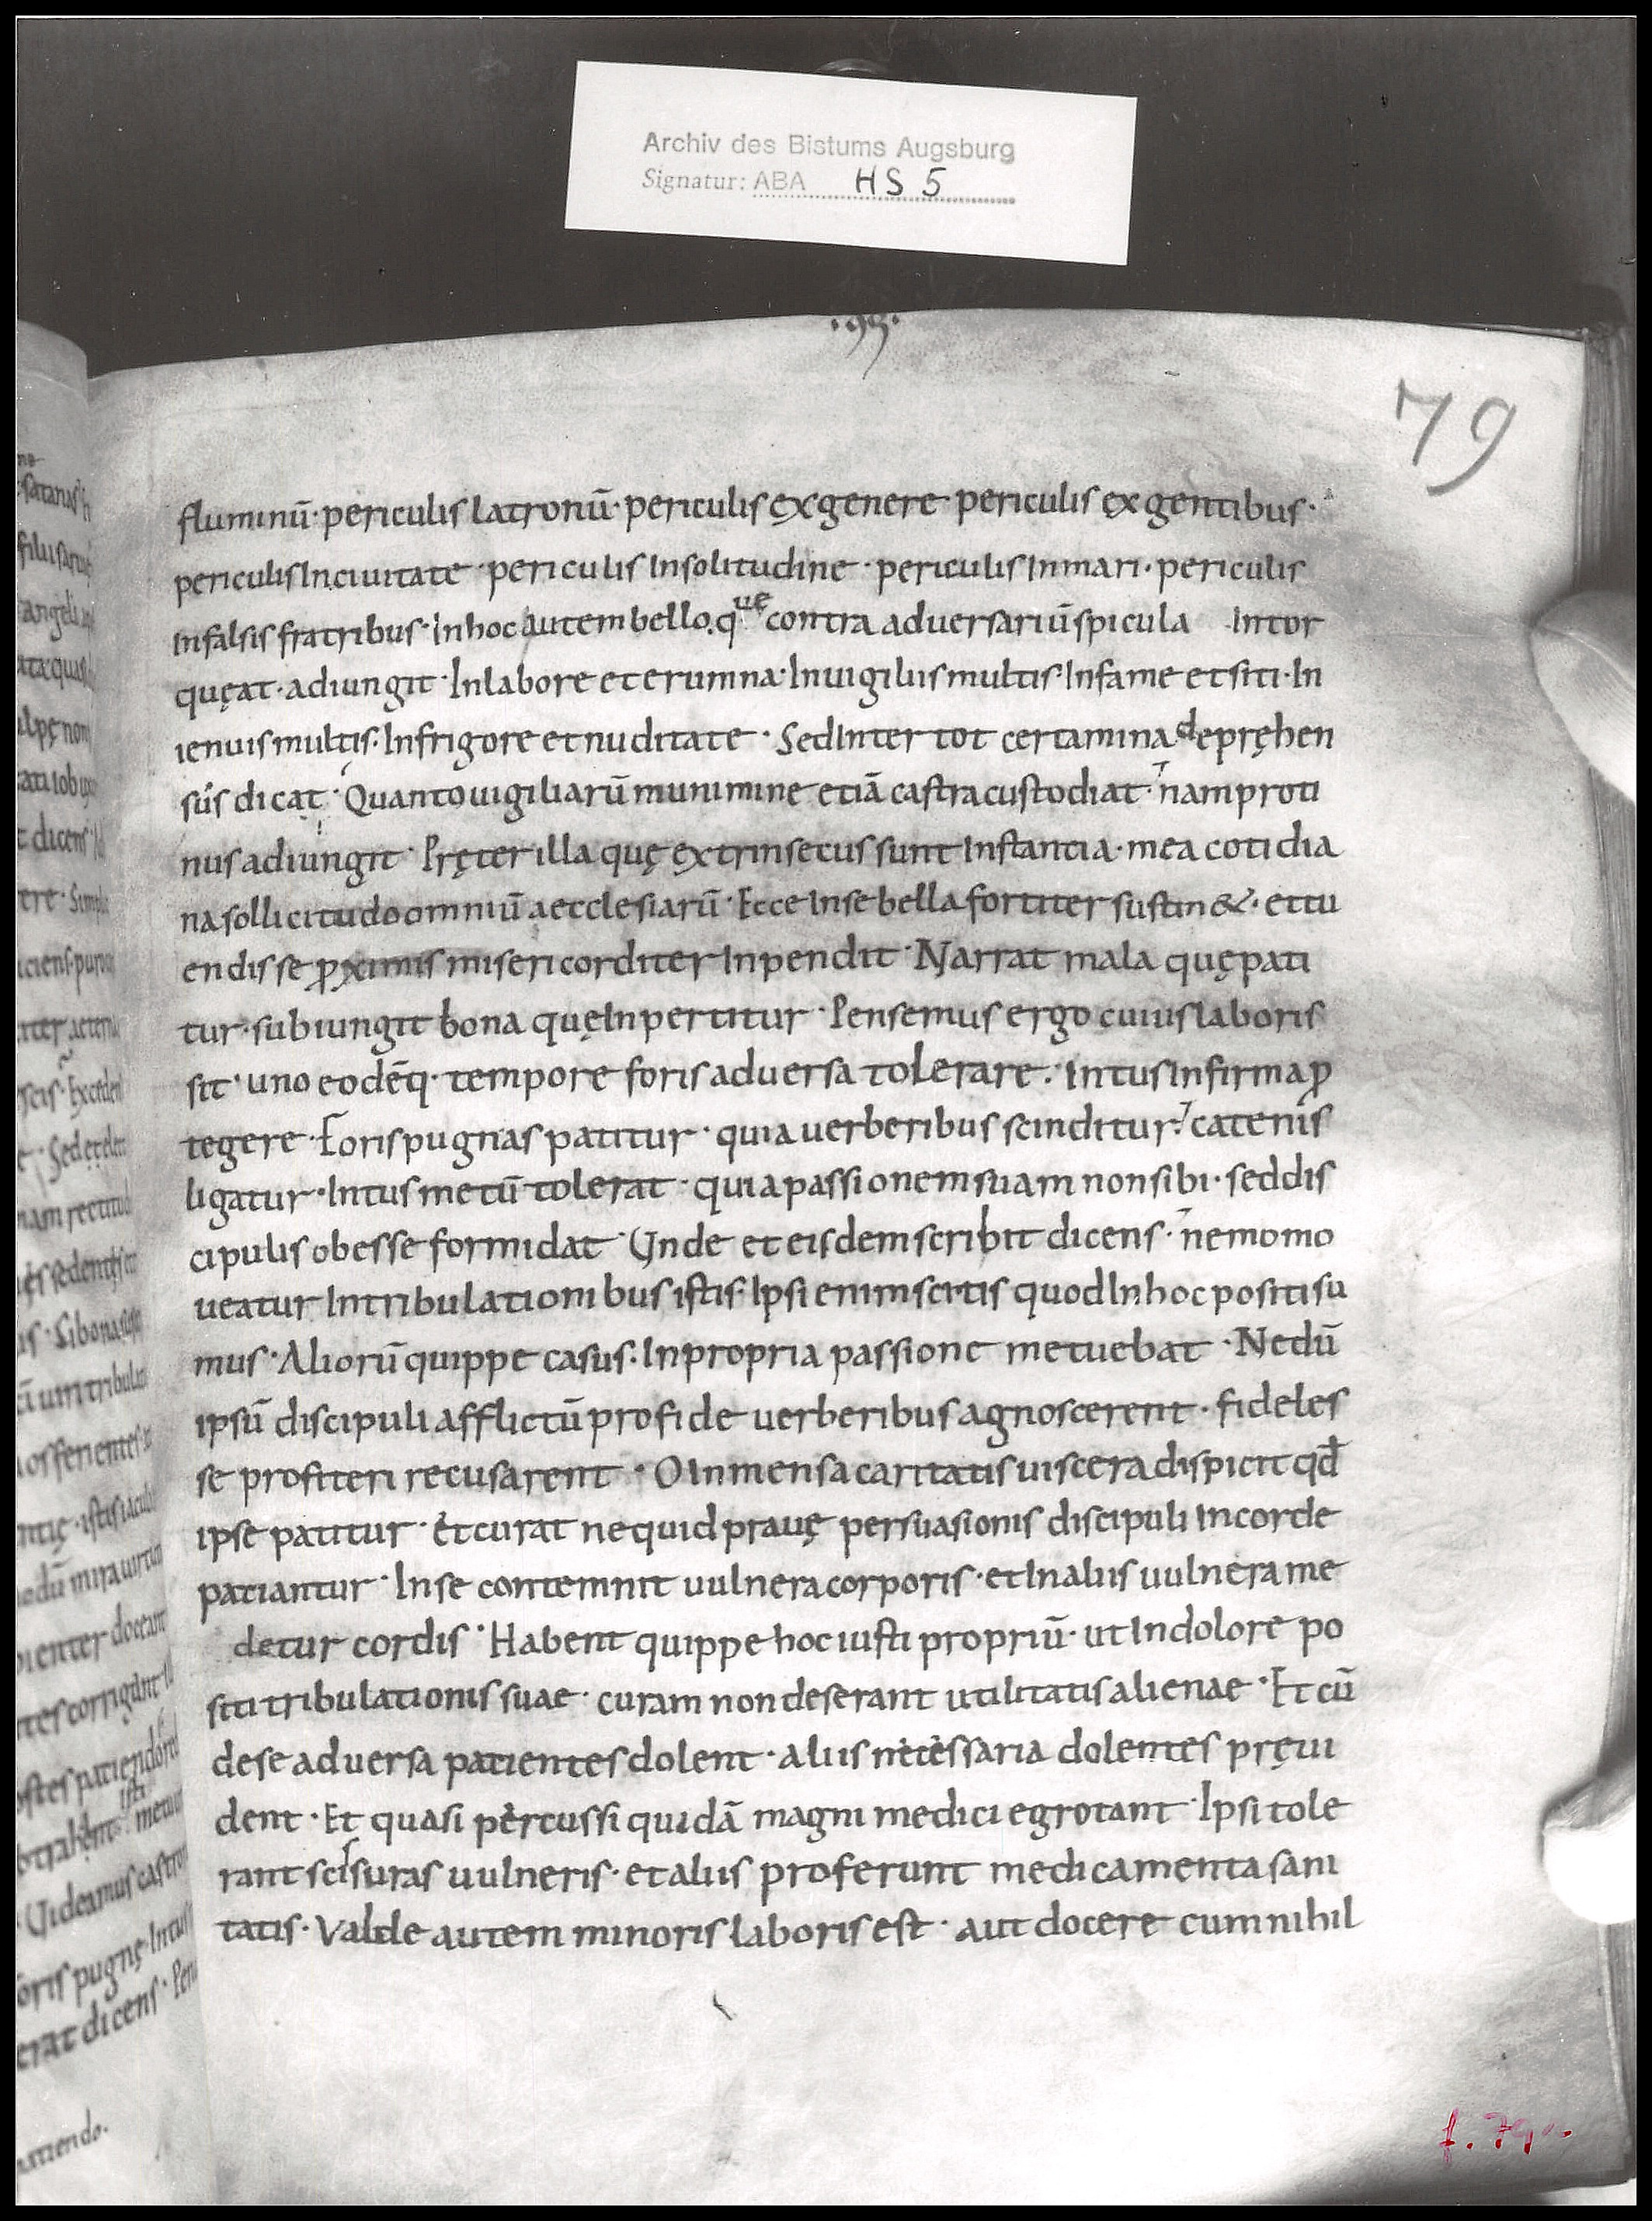 Archiv des Bistums Augsburg
Signatur: ABA HS 5
79
fluminū · periculis latronū · periculis ex genere · periculis ex gentibus ·
periculis In ciuitate · periculis In solitudine · periculis In mari · periculis
In falsis fratribus · In hoc autem bello · q ue contra aduersariū spicula Intor
quęat · adiungit · In labore et erumna · In uigiliis multis · In fame et siti · In
ieiunis multis · In frigore et nuditate · Sed Inter tot certamina depręhen
sus dicat · Quanto uigiliarū munimine etiā castra custodiat · nam proti
nus adiungit · Pręter illa quę extrinsecus sunt Instantia · mea cotidia
na sollicitudo omniū aecclesiarū · Ecce In se bella fortiter sustin& · et tu
endis se ꝓximis misericorditer Inpendit · Narrat mala quę pati
tur · subiungit bona quę Inpertitur · Pensemus ergo cuius laboris
sit · uno eodēq · tempore foris aduersa tolerare · Intus Infirma ꝓ
tegere · Foris pugnas patitur · quia uerberibus scinditur · catenis
ligatur · Intus metū tolerat · quia passionem suam non sibi · sed dis
cipulis obesse formidat · Unde et eisdem scribit dicens · nemo mo
ueatur In tribulationibus istis · Ipsi enim scitis quod In hoc positi su
mus · Aliorū quippe casus · In propria passione metuebat · Ne dū
ipsū discipuli afflictū pro fide uerberibus agnoscerent · fideles
se profiteri recusarent · O Inmensa caritatis uiscera dispicit qd̄
ipse patitur · Et curat ne quid prauę persuasionis discipuli In corde
patiantur · In se contemnit uulnera corporis · et In aliis uulnera me
detur cordis · Habent quippe hoc iusti propriū · ut In dolore po
siti tribulationis suae · curam non deserant utilitatis alienae · Et cū
de se aduersa patientes dolent · aliis necessaria dolentes pręui
dent · Et quasi percussi quidā magni medici egrotant · Ipsi tole
rant scisuras uulneris · et aliis proferunt medicamenta sani
tatis · Valde autem minoris laboris est · aut docere cum nihil
f. 79